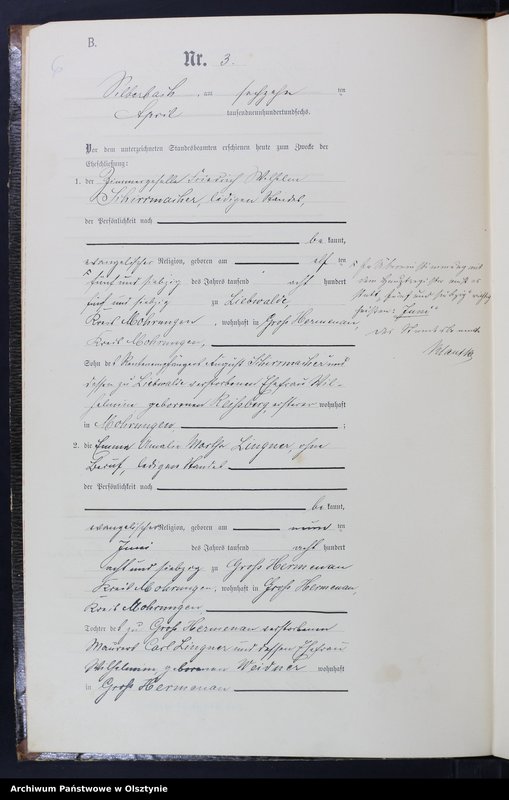 B.
Nr. 3.
Silberbach, am sechzehn ten
April tausendneunhundertundsechs.
Vor dem unterzeichneten Standesbeamten erschienen heute zum Zwecke der
Eheschließung:
1. der Zimmergeselle Friedrich Wilhelm
Schirrmacher, ledigen Standes,
der Persönlichkeit nach
be kannt,
evangelischer Religion, geboren am elf ten
fünf und siebzig des Jahres tausend acht hundert
fünf und siebzig zu Liebwalde,
Kreis Mohrungen, wohnhaft in Groß Hermenau,
Kreis Mohrungen,
Sohn des Rentenempfängers August Schirrmacher und
dessen zu Liebwalde verstorbenen Ehefrau Wil-
helmine geborenen Reißberg, ersterer wohnhaft
in Mohrungen ;
2. die Emma Amalie Martha Lingner, ohne
Beruf, ledigen Standes
der Persönlichkeit nach
be kannt,
evangelischer Religion, geboren am neun ten
Juni des Jahres tausend acht hundert
acht und siebzig zu Groß Hermenau
Kreis Mohrungen, wohnhaft in Groß Hermenau,
Kreis Mohrungen,
Tochter des zu Groß Hermenau verstorbenen
Maurers Carl Lingner und dessen Ehefrau
Wilhelmine geborenen Weidner wohnhaft
in Groß Hermenau
In Übereinstimmung mit
dem Hauptregister muß es
statt "fünf und siebzig" richtig
heißen: "Juni"
Der Standesbeamte
Archiwum Państwowe w Olsztynie